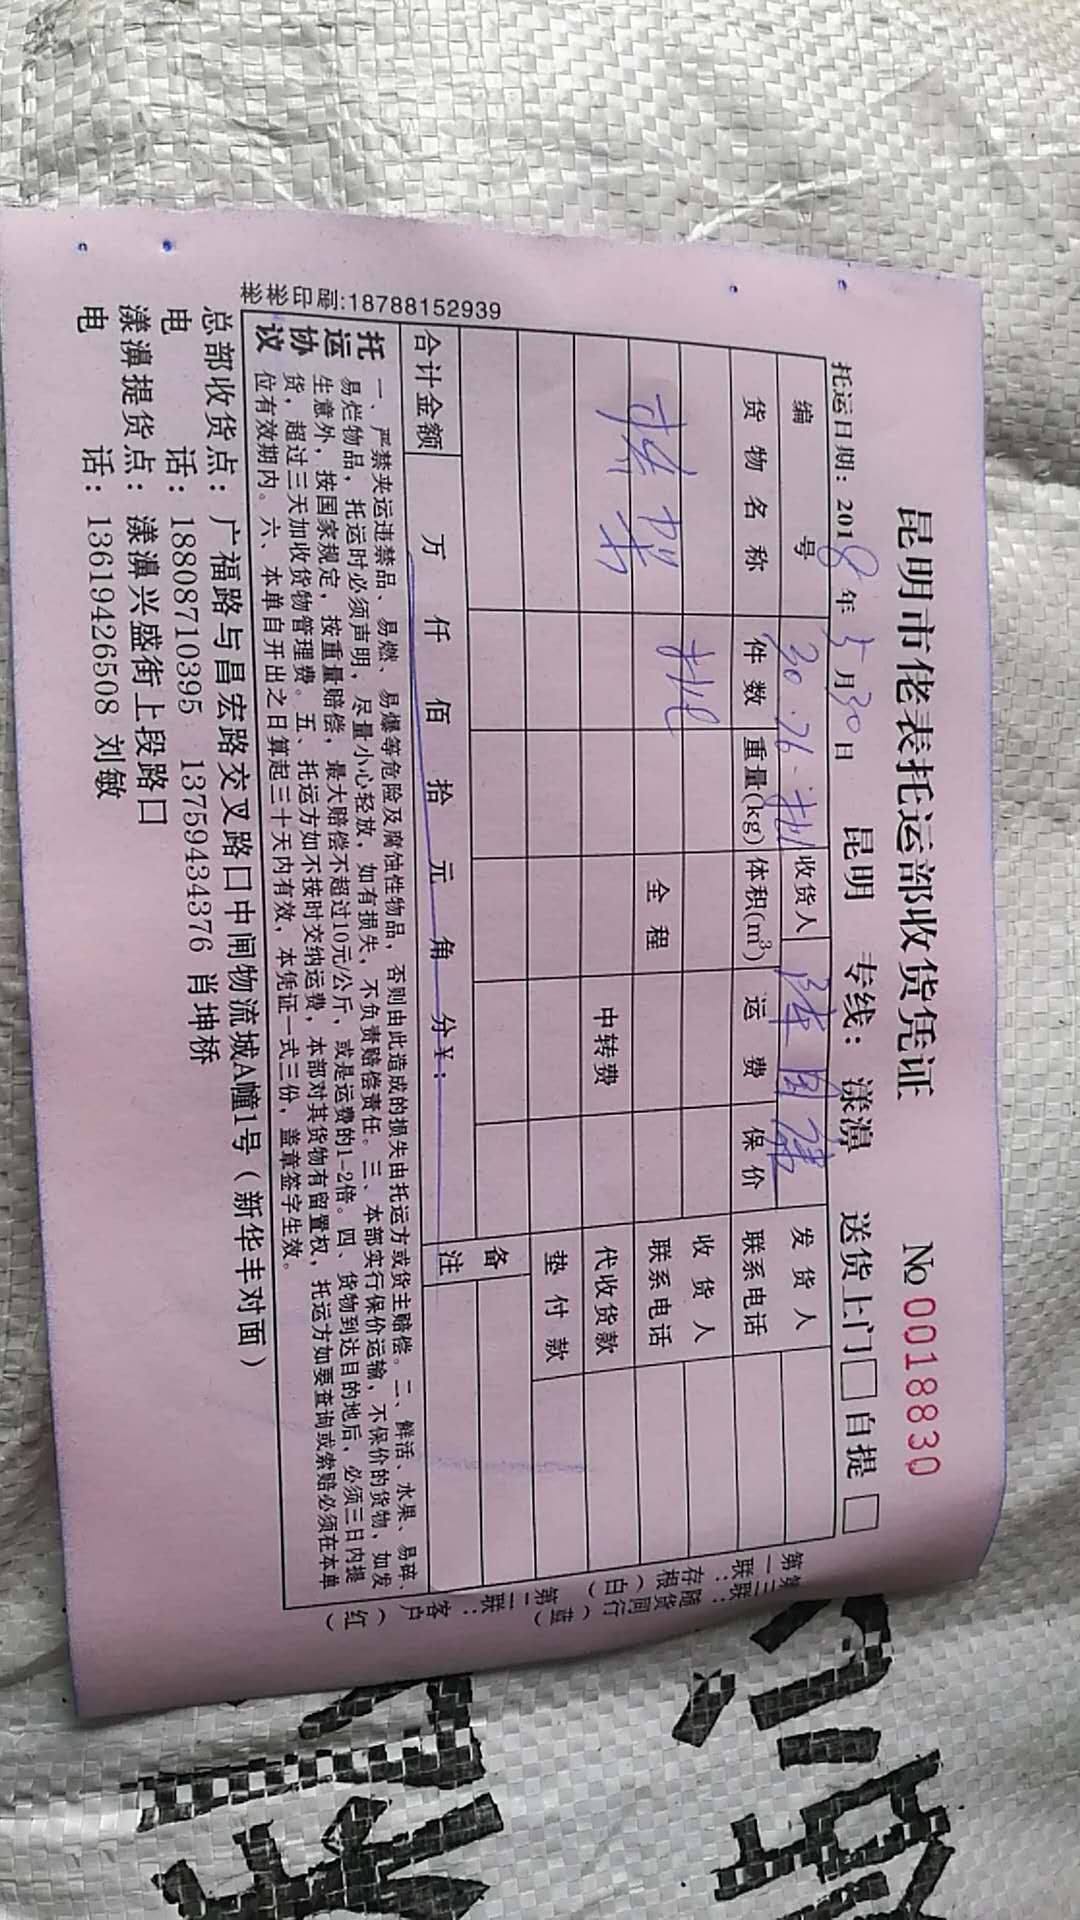 昆明市佬表托运部收货凭证
№ 0018830
托运日期：2018年5月30日 昆明 专线：漾濞 送货上门□ 自提□
编号 30.76. 收货人 陈国 发货人
货物名称 件数 重量(kg) 体积(m³) 运费 保价 联系电话
收货人
全程 联系电话
中转费 代收货款
垫付款
备注
合计金额 万 仟 佰 拾 元 角 分￥：
托运协议
一、严禁夹运违禁品、易燃、易爆等危险及腐蚀性物品，否则由此造成的损失由托运方或货主赔偿。二、鲜活、水果、易碎、
易烂物品，托运时必须声明，尽量小心轻放，如有损失，不负责赔偿责任。三、本部实行保价运输，不保价的货物，如发
生意外，按国家规定，按重量赔偿，最大赔偿不超过10元/公斤，或是运费的1-2倍。四、货物到达目的地后，必须三日内提
货，超过三天加收货物管理费。五、托运方如不按时交纳运费，本部对其货物有留置权，托运方如要查询或索赔必须在本单
位有效期内。六、本单自开出之日算起三十天内有效，本凭证一式三份，盖章签字生效。
总部收货点：广福路与昌宏路交叉路口中闸物流城A幢1号（新华丰对面）
电 话：18808710395 13759434376 肖坤桥
漾濞提货点：漾濞兴盛街上段路口
电 话：13619426508 刘敏
彬彬印刷:18788152939
第一联：存根（白）
第二联：客户（红）
第三联：随货同行（蓝）